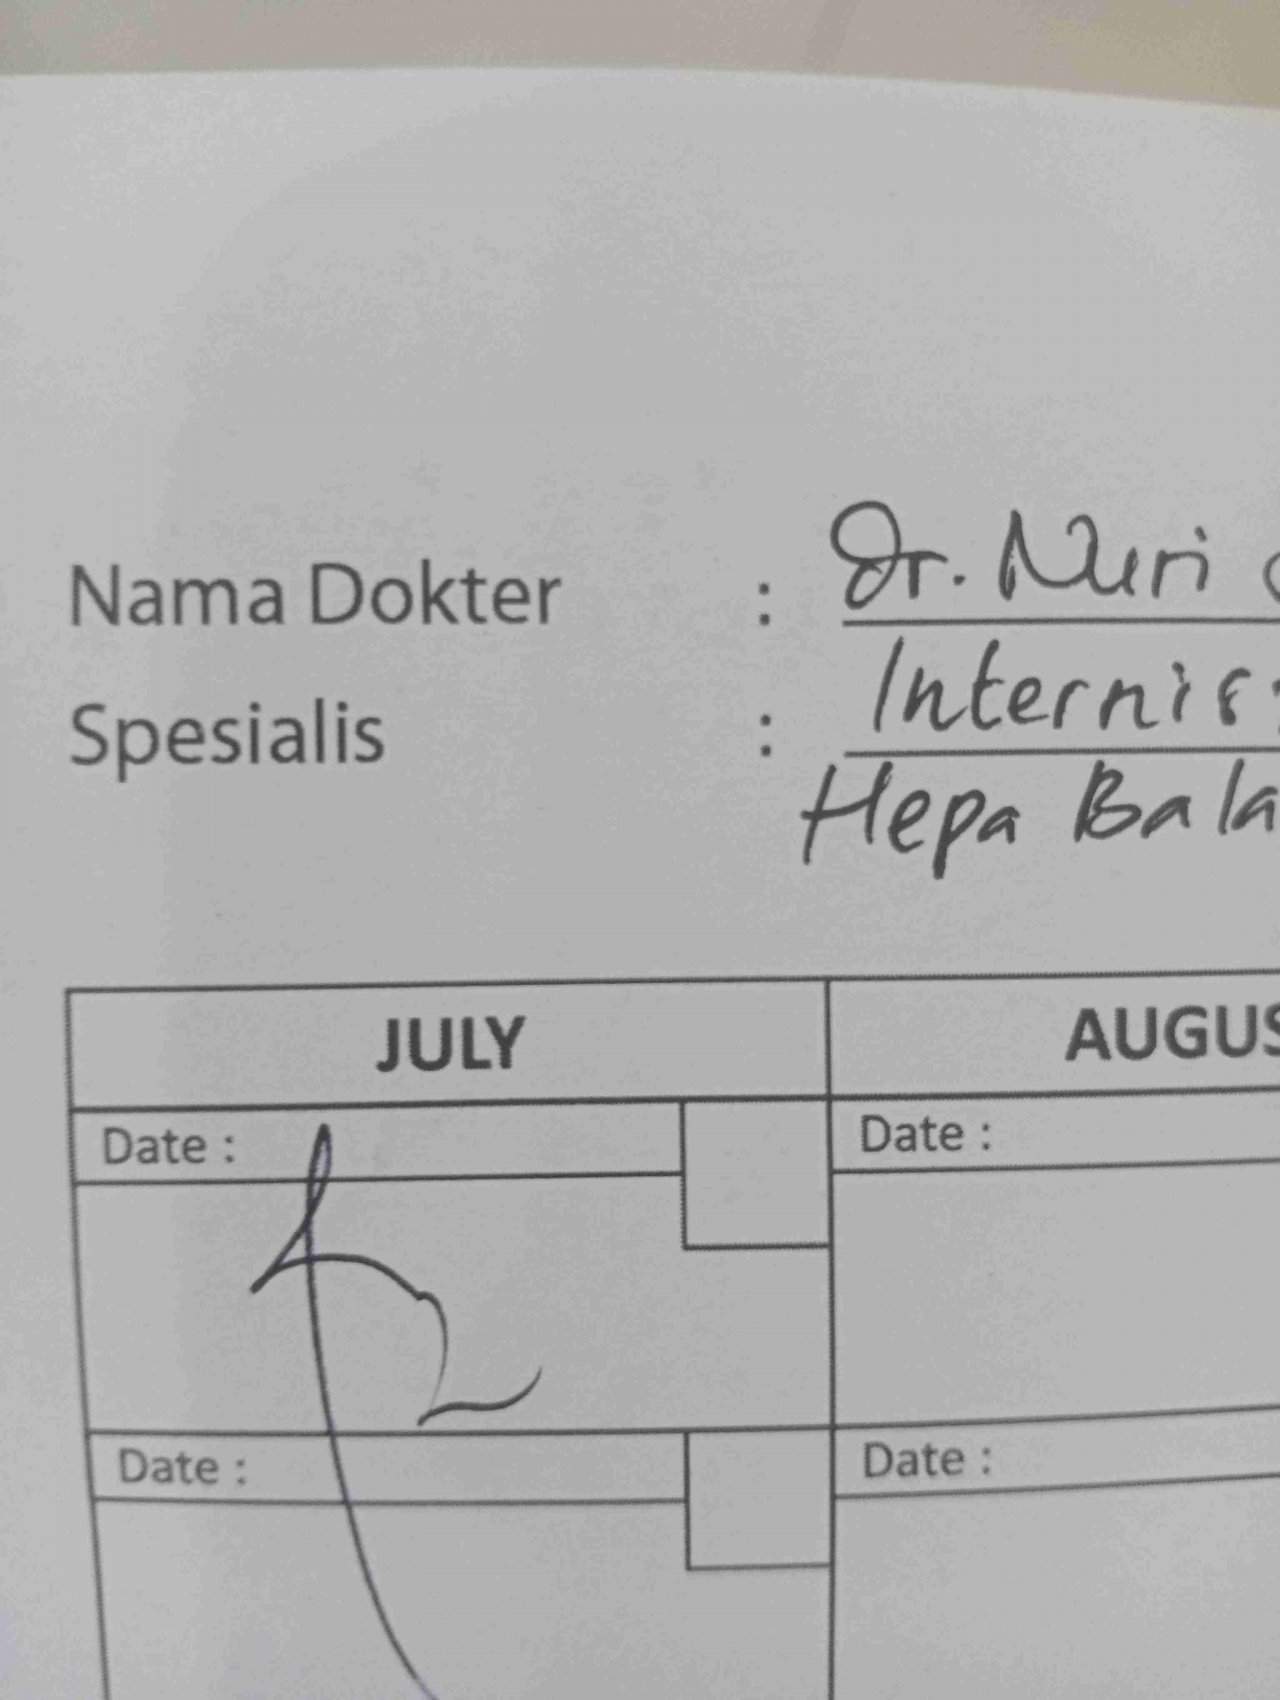 Nama Dokter : Dr. Nuri
Spesialis : Internis
Hepa Bala
JULY AUGUS
Date : Date :
Date : Date :